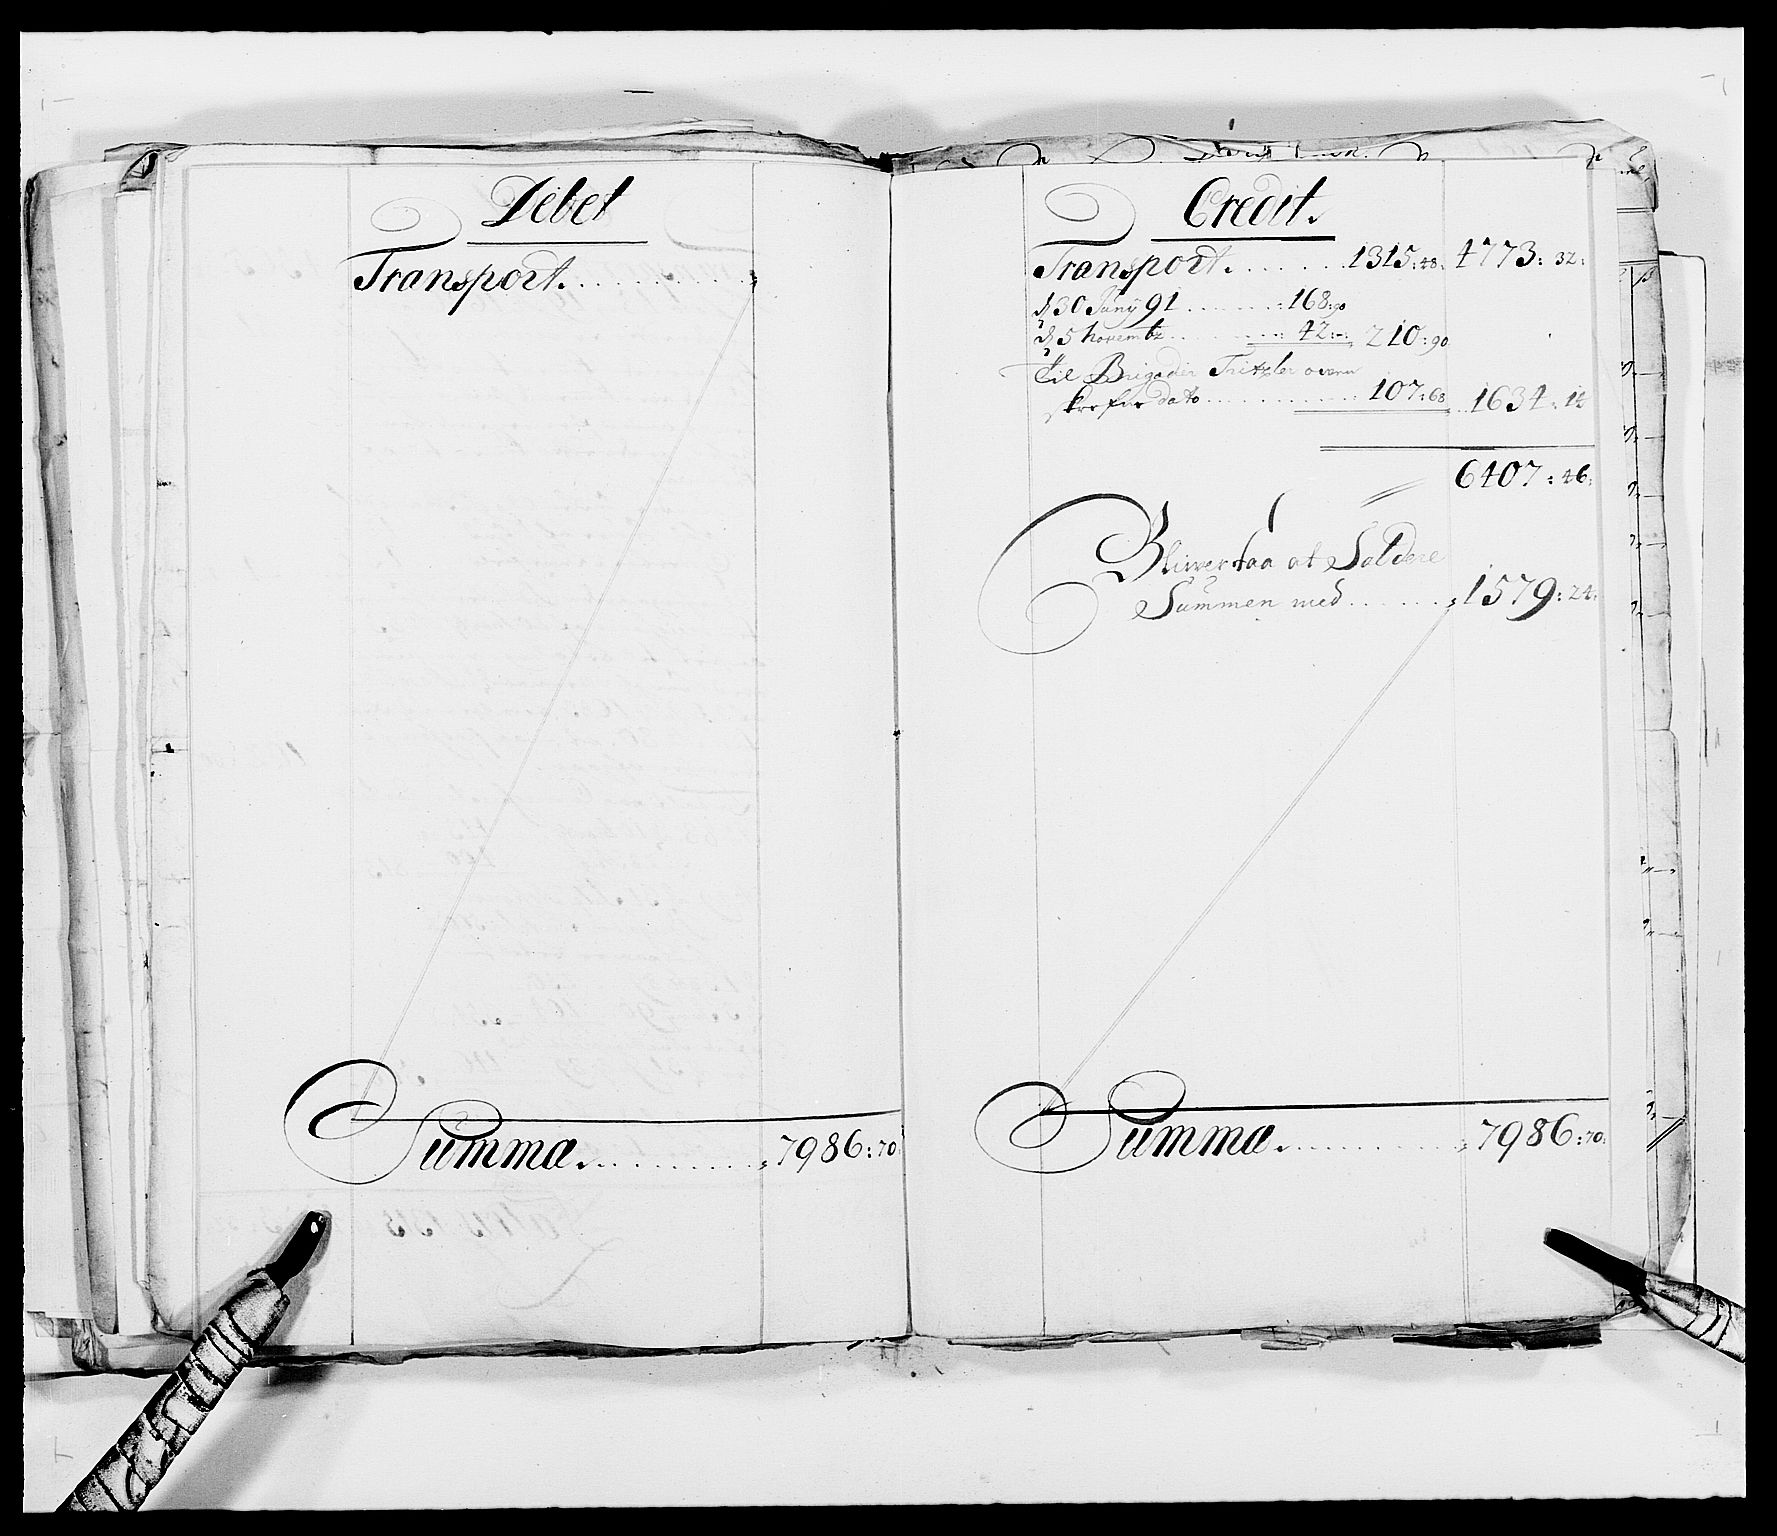 Debet
Transport
Summa 7986:70
Credit.
Transport 1315:48: 4773:32:
d 30 Juny 91 168:90
d 5 Novemb 42:-: 210:90
til Brigader Tritzler
dato 107:68 1634:14
6407:46:
Bliver saa at Saldere
Summen med 1579:24:
Summa 7986:70: